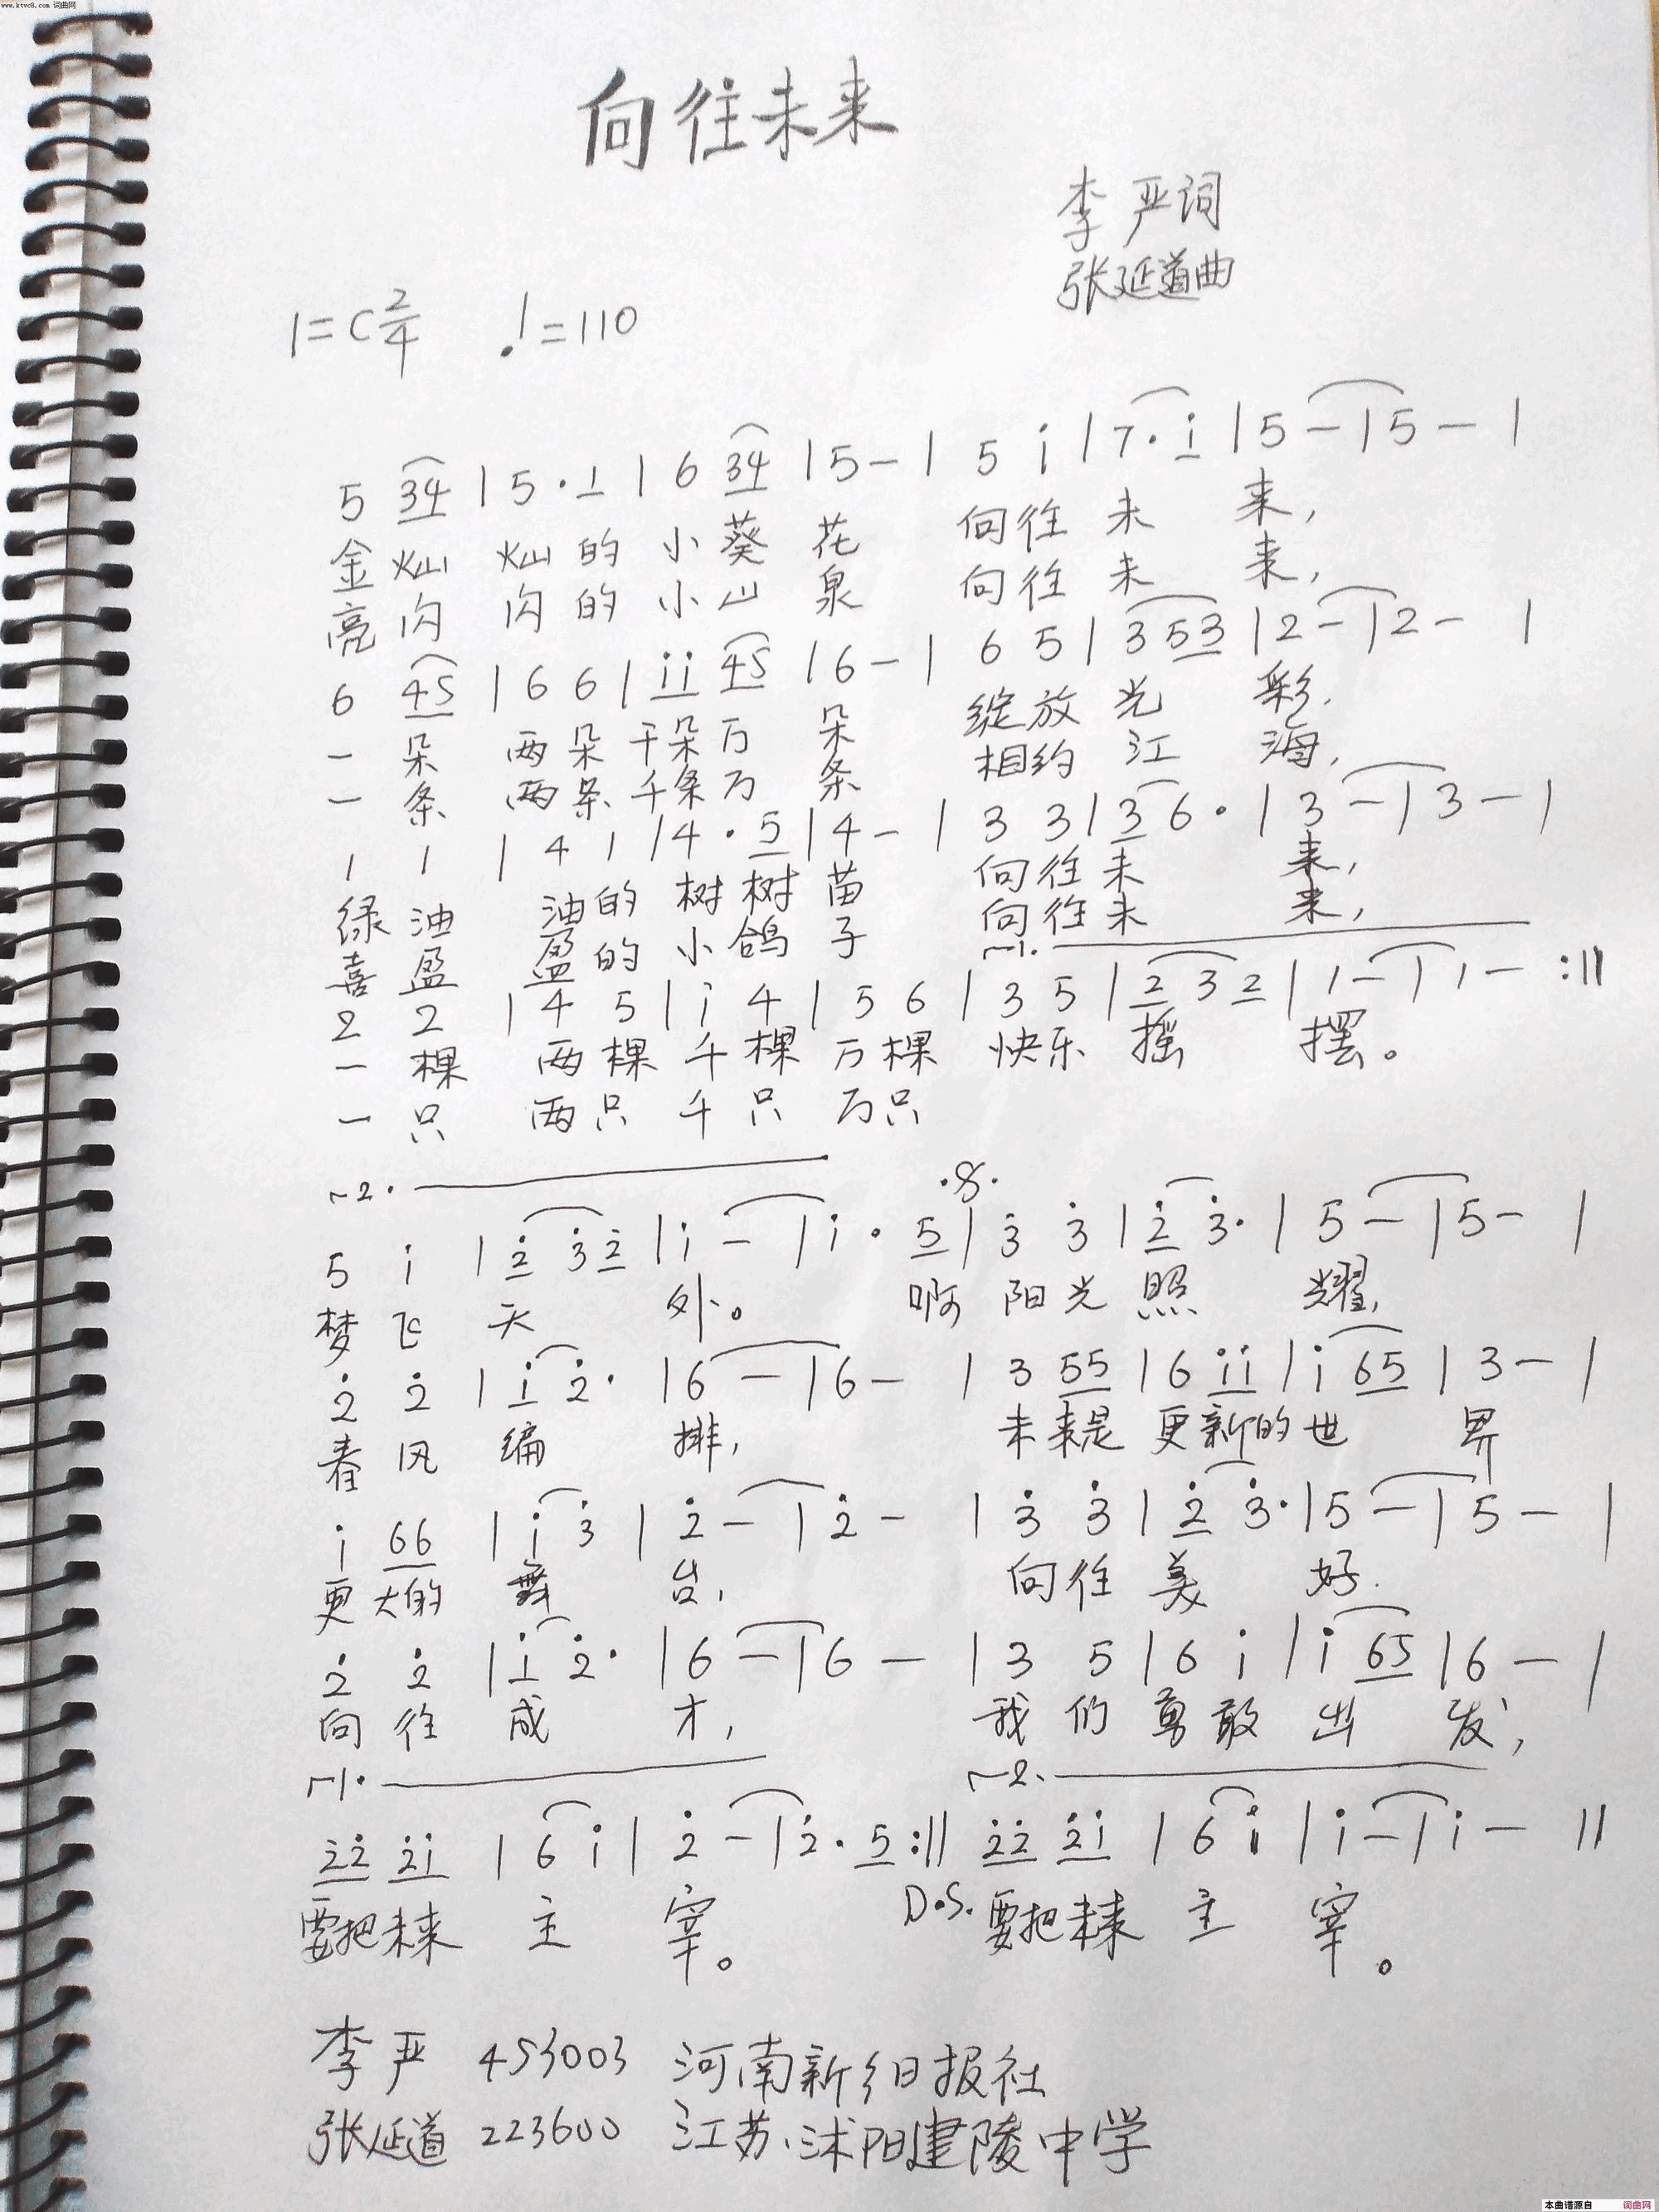 www.ktvc8.com 词曲网
向往未来
李严词
张延道曲
1=C 2/4 ♩=110
5 34 | 5·1 | 6 34 | 5- | 5 i | 7·i | 5-|5- |
金灿 灿的 小葵 花 向往 未 来,
亮闪 闪的 小山 泉 向往 未 来,
6 45 | 6 6 | ii 45 | 6- | 6 5 | 3 53 | 2-|2- |
一朵 两朵 千朵万 朵 绽放 光 彩.
一条 两条 千条万 条 相约 江 海,
1 1 | 4 1 | 4·5 | 4- | 3 3 | 3 6· | 3-|3- |
绿油 油的 树树 苗 向往 未 来,
喜盈 盈的 小鸽 子 向往 未 来,
1.
2 2 | 4 5 | i 4 | 5 6 | 3 5 | 2 3 2 | 1-|1- :||
一棵 两棵 千棵 万棵 快乐 摇 摆。
一只 两只 千只 万只
2. 𝄋
5 i | 2̇ 3̇2̇ | i-|i·5 | 3̇ 3̇ | 2̇ 3̇· | 5-|5- |
梦飞 天 外。 啊 阳光 照 耀,
2̇ 2̇ | i 2̇· | 6-|6- | 3 55 | 6 ii | i 65 | 3- |
春风 编 排, 未来是 更新的 世 界
i 66 | i 3̇ | 2̇-|2̇- | 3̇ 3̇ | 2̇ 3̇· | 5-|5- |
更大的 舞 台, 向往 美 好.
2̇ 2̇ | i 2̇· | 6-|6- | 3 5 | 6 i | i 65 | 6- |
向往 成 才, 我们 勇敢 出 发,
1. 2.
2̇2̇ 2̇i | 6 i | 2̇-|2̇·5 :|| 2̇2̇ 2̇i | 6 i | i-|i- ||
要把未来 主 宰。 D.S. 要把未来 主 宰。
李严 453003 河南新乡日报社
张延道 223600 江苏、沭阳建陵中学
本曲谱源自 词曲网